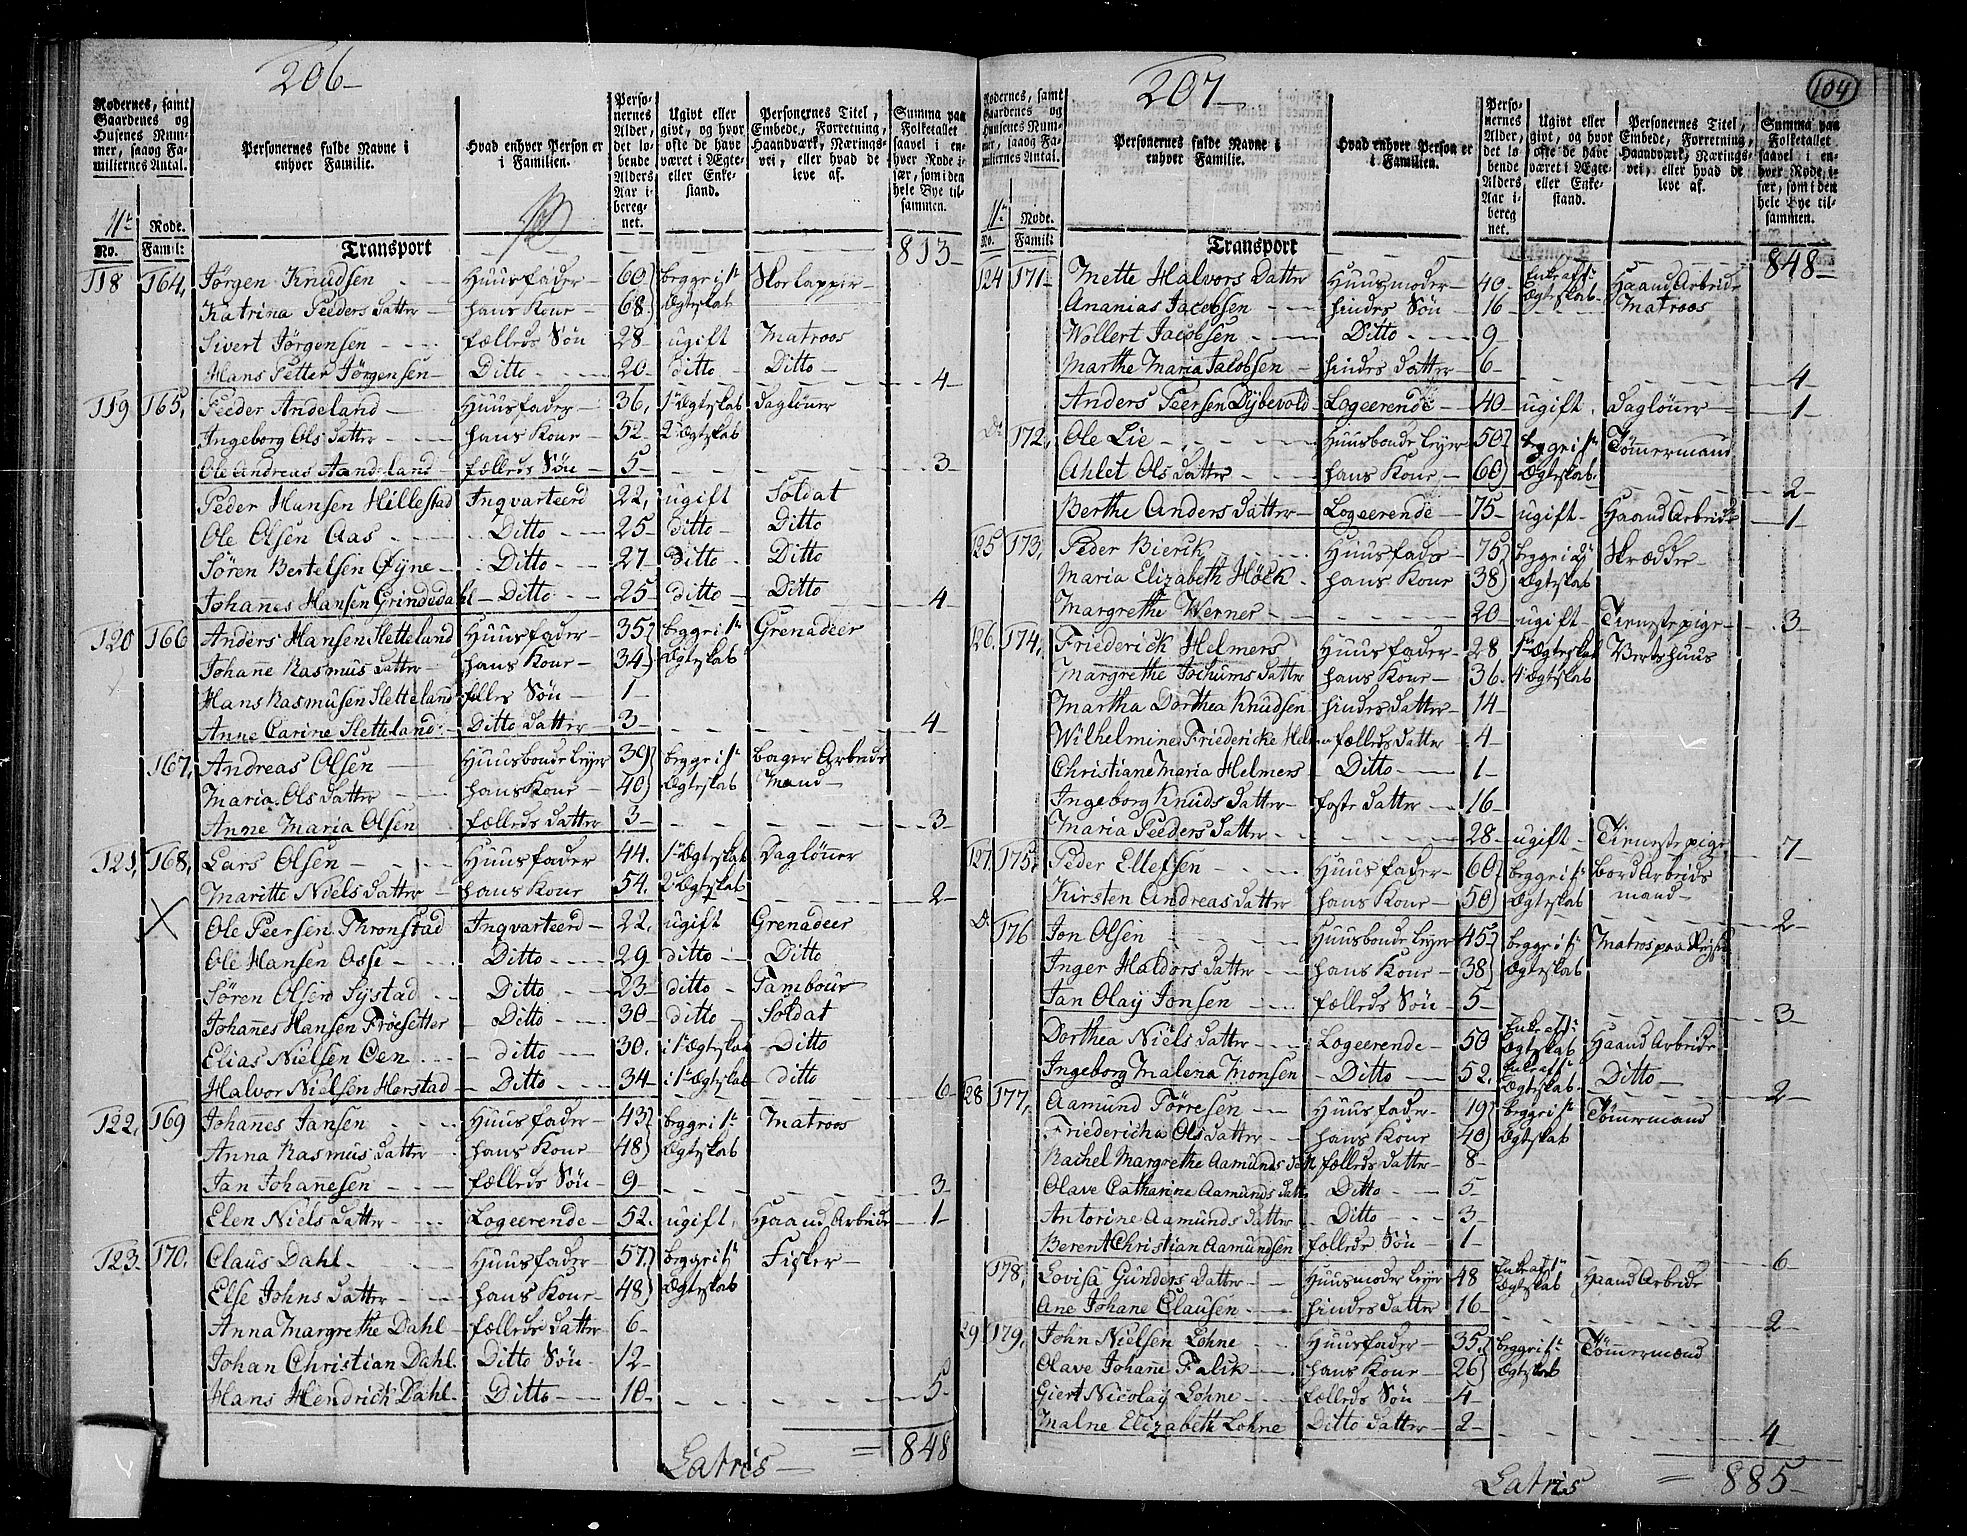 206
Rodernes, samt Gaardenes og Husenes Nummer, saavog Familiernes Antal.
Personernes fulde Navne i enhver Familie.
Hvad enhver Person er i Familien.
Personernes Alder, det løbende Alders Aar iberegnet.
Ugivt eller givt, og hvor ofte de have været i Ægte- eller Enkestand.
Personernes Titel, Embede, Forretning, Haandværk, Næringsvei, eller hvad de leve af.
Summa paa Folketallet saavel i enhver Rode især, som i den hele Bye tilsammen.
Rode.
No. Famil: Transport 813
118 164, Jørgen Knudsen Huusfader 60 begge i 1te Skorlappir
Katrina Peeders Datter hans Kone 68 Ægteskab
Sivert Jørgensen fælleds Søn 28 ugift Matroos
Hans Petter Jørgensen Ditto 20 ditto Ditto 4
119 165, Peeder Andeland Huusfader 36, 1te Ægteskab Dagløner
Ingeborg Ols Datter hans Kone 52 2de Ægteskab
Ole Andreas Aandeland fælleds Søn 5 3
Peder Hansen Hillestad Inqvarteerd 22, ugift Soldat
Ole Olsen Aas Ditto 25 ditto Ditto
Søren Bertelsen Øijne Ditto 27 ditto Ditto
Johanes Hansen Grindedahl Ditto 25 ditto Ditto 4
120 166 Anders Hansen Sletteland Huusfader 35 begge i 1te Grenadeer
Johane Rasmus Datter hans Kone 34 Ægteskab
Hans Rasmusen Sletteland fælles Søn 1
Anne Carine Sletteland Ditto Datter 3 4
167, Andreas Olsen Huusbonde Leyer 39 begge i 1te bager Arbeids
Maria Ols Datter hans Kone 40 Ægteskab Mand
Anne Maria Olsen fælleds Datter 3 3
121, 168, Lars Olsen Huusfader 44. 1te Ægteskab Dagløner
Maritte Niels Datter hans Kone 54. 2de Ægteskab 2
Ole Peersen Thronstad Inqvarteerd 22, ugift Grenadeer
Ole Hansen Osse Ditto 29 ditto Ditto
Søren Olsen Sÿstad Ditto 23 ditto Tambour
Johanes Hansen Frøesetter Ditto 30 ditto Soldat
Elias Nielsen Oen ditto 30. i 1te Ægteskab Ditto
Halvor Nielsen Herstad Ditto 34 i 1te Ægteskab ditto 6
122, 169 Johanes Jansen Huusfader 43 begge i 1te Matroos
Anna Rasmus Datter hans Kone 48 Ægteskab
Jan Johanesen fælleds Søn 9 3
Elen Niels Datter Logeerende 52. ugift, Haand Arbeide 1
123 170, Claus Dahl Huusfader 57 begge i 1te Fisker
Else Johns Datter hans Kone 48 Ægteskab
Anna Margrethe Dahl fælleds Datter 6
Johan Christian Dahl Ditto Søn 12
Hans Hendrich Dahl Ditto 10 5
Latris = 848
207
104
Rodernes, samt Gaardenes og Husenes Nummer, saavog Familiernes Antal.
Personernes fulde Navne i enhver Familie.
Hvad enhver Person er i Familien.
Personernes Alder, det løbende Alders Aar iberegnet.
Ugivt eller givt, og hvor ofte de have været i Ægte- eller Enkestand.
Personernes Titel, Embede, Forretning, Haandværk, Næringsvei, eller hvad de leve af.
Summa paa Folketallet saavel i enhver Rode, især, som i den hele Bye tilsammen.
Rode.
No. Famil: Transport 848
124 171 Mette Halvors Datter Huusmoder 40 Enke af 1te Ægteskab Haand Arbeide
Ananias Jacobsen hindes Søn 16 Matroos
Wollert Jacobsen Ditto 9
Marthe Maria Jacobsen hindes Datter 6 4
Anders Peersen Dÿbevold Logeerende 40 ugift, Dagløner 1
Do 172, Ole Lie Huusbonde Leyer 50 begge i 1te Tømermand
Ahlet Ols Datter hans Kone 60 Ægteskab 2
Berthe Anders Datter Logeerende 75 ugift Haand Arbeide 1
125 173, Peder Bierck Huusfader 75 begge i 2de Skrædder
Maria Elizabeth Höck hans Kone 38 Ægteskab
Margrethe Werner 20 ugift Tienestepige 3
126. 174, Friederick Helmers Huusfader 28 1te Ægteskab Vertshuus
Margrethe Jochums Datter hans Kone 36. 4de Ægteskab
Martha Dorthea Knudsen hindes Datter 14
Wilhelmine Friedericke Helmers fælleds Datter 4
Christiane Maria Helmers Ditto 1
Ingeborg Knuds Datter foster Datter 16
Maria Peeders Datter 28 ugift Tienestepige 7
127. 175, Peder Ellefsen Huusfader 60 begge i 1te bord Arbeids
Kirsten Andreas Datter hans Kone 50 Ægteskab mand 2
Do 176 Jon Olsen Huusbonde Leyer 45 begge i 1te Matros paa Rejse
Inger Haldors Datter hans Kone 38 Ægteskab
Jan Olaÿ Jonsen fælleds Søn 5 3
Dorthea Niels Datter Logeerende 50 Enke af 1te Ægteskab Haand Arbeide
Ingeborg Malena Monsen Ditto 52. Enke af 1te Ægteskab Ditto 2
128 177, Aamund Tørresen Huusfader 19 begge i 1te Tømermand
Friedericha Ols Datter hans Kone 40 Ægteskab
Rachel Margrethe Aamunds Datt fælleds Datter 8
Olave Catharine Aamunds Datt Ditto 5
Antorine Aamunds Datter Ditto 3
Berent Christian Aamundsen fælleds Søn 1 6
178, Lovisa Gunders Datter Huusmoder Leyer 48 Enke af 1te Ægteskab Haand Arbeide
Ane Johane Clausen hindes Datter 16 2
29 179, John Nielsen Lohne Huusfader 35 begge i 1te Tömermand
Olave Johane Falck hans Kone 26 Ægteskab
Giert Nicolaÿ Lohne fælleds Søn 4
Malne Elizabeth Lohne Ditto Datter 2 4
Latris = 885